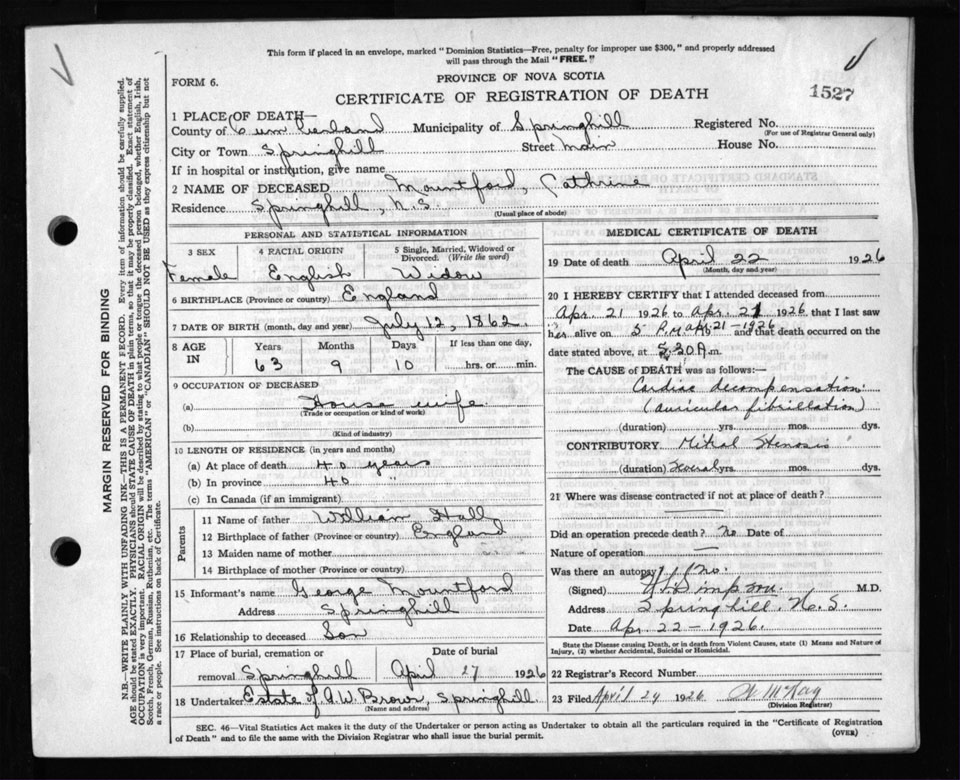 This form if placed in an envelope, marked "Dominion Statistics—Free, penalty for improper use $300," and properly addressed
will pass through the Mail "FREE."
FORM 6.
PROVINCE OF NOVA SCOTIA
CERTIFICATE OF REGISTRATION OF DEATH
1527
1 PLACE OF DEATH—
County of Cumberland Municipality of Springhill Registered No.
(For use of Registrar General only)
City or Town Springhill Street Main House No.
If in hospital or institution, give name
2 NAME OF DECEASED Mountford, Cathrine
Residence Springhill, N.S
(Usual place of abode)
PERSONAL AND STATISTICAL INFORMATION
3 SEX 4 RACIAL ORIGIN 5 Single, Married, Widowed or
Divorced. (Write the word)
Female English Widow
6 BIRTHPLACE (Province or country) England
7 DATE OF BIRTH (month, day and year) July 12, 1862.
8 AGE IN Years Months Days If less than one day,
63 9 10 hrs. or min.
9 OCCUPATION OF DECEASED
(a) House wife.
(Trade or occupation or kind of work)
(b)
(Kind of industry)
10 LENGTH OF RESIDENCE (in years and months)
(a) At place of death 40 years
(b) In province 40 "
(c) In Canada (if an immigrant)
Parents
11 Name of father William Hall
12 Birthplace of father (Province or country) England
13 Maiden name of mother
14 Birthplace of mother (Province or country)
15 Informant's name George Mountford
Address Springhill
16 Relationship to deceased Son
17 Place of burial, cremation or Date of burial
removal Springhill April 27 1926
18 Undertaker Estate of A.W. Brown, Springhill.
(Name and address)
MEDICAL CERTIFICATE OF DEATH
19 Date of death April 22 1926
(Month, day and year)
20 I HEREBY CERTIFY that I attended deceased from
Apr. 21 1926 to Apr. 21 1926 that I last saw
her alive on 5 P.M Apr 21-1926 19 and that death occurred on the
date stated above, at 5.30 A.m.
The CAUSE of DEATH was as follows:—
Cardiac decompensation
(auricular fibrillation)
(duration) yrs. mos. dys.
CONTRIBUTORY Mitral Stenosis
(duration) Several yrs. mos. dys.
21 Where was disease contracted if not at place of death?
Did an operation precede death? No Date of
Nature of operation
Was there an autopsy? No.
(Signed) Simpson. M.D.
Address Springhill. N.S.
Date Apr. 22-1926.
State the Disease causing Death, or in death from Violent Causes, state (1) Means and Nature of
Injury, (2) whether Accidental, Suicidal or Homicidal.
22 Registrar's Record Number
23 Filed April 24 1926 McKay
(Division Registrar)
SEC. 46—Vital Statistics Act makes it the duty of the Undertaker or person acting as Undertaker to obtain all the particulars required in the "Certificate of Registration
of Death" and to file the same with the Division Registrar who shall issue the burial permit.
(OVER)
MARGIN RESERVED FOR BINDING
N.B.—WRITE PLAINLY WITH UNFADING INK—THIS IS A PERMANENT RECORD. Every item of information should be carefully supplied.
AGE should be stated EXACTLY. PHYSICIANS should STATE CAUSE OF DEATH in plain terms, so that it may be properly classified. Exact statement of
OCCUPATION is very important. RACIAL ORIGIN will be described by stating to what people or tongue the deceased person belonged, whether English, Irish,
Scotch, French, German, Russian, Ruthenian, etc. The terms "AMERICAN" or "CANADIAN" SHOULD NOT BE USED as they express citizenship but not
a race or people. See instructions on back of Certificate.